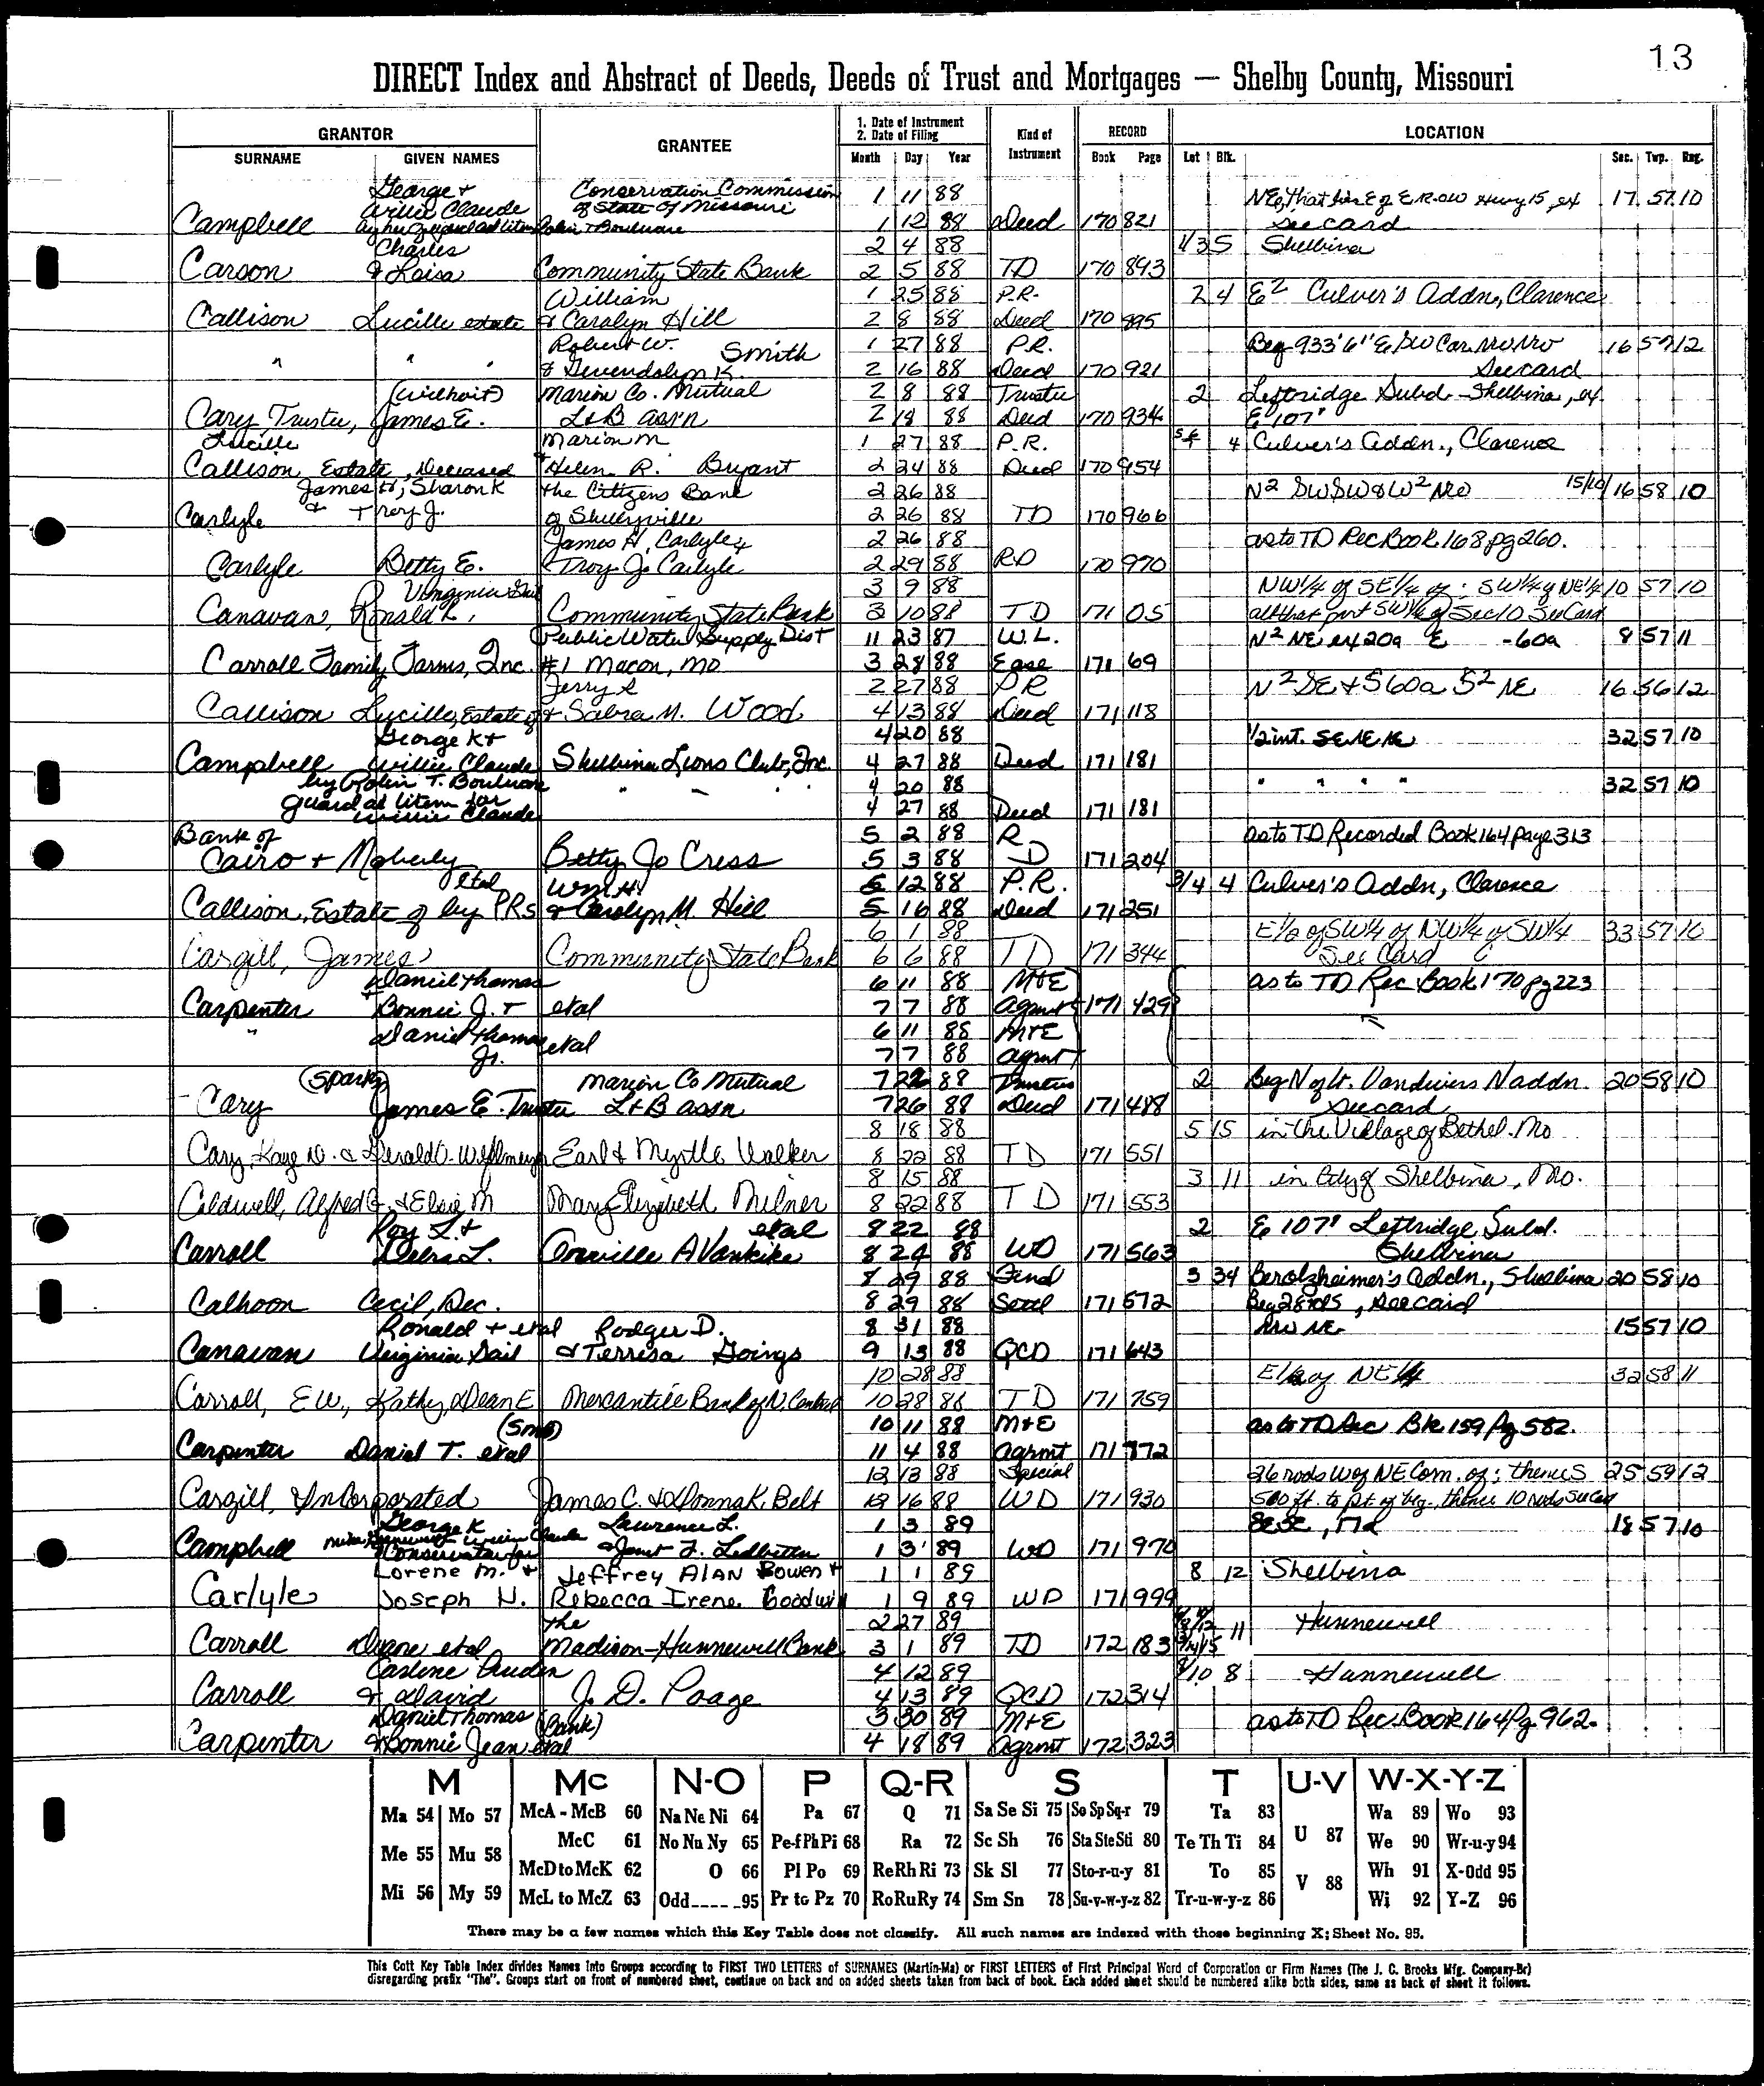 13
DIRECT Index and Abstract of Deeds, Deeds of Trust and Mortgages — Shelby County, Missouri
GRANTOR GRANTEE 1. Date of Instrument 2. Date of Filing Kind of Instrument RECORD LOCATION
SURNAME GIVEN NAMES Month Day Year Book Page Lot Blk. Sec. Twp. Rng.
George & Conservation Commission 1 11 88 17 57 10
Willie Claude of State of Missouri
Campbell 1 12 88 Deed 170 821 see card
Charles 2 4 88 1/3 5 Shelbina
Carson & Loisa Community State Bank 2 5 88 TD 170 893
William 1 25 88 P.R. 2 4 E2 Culver's Addn, Clarence
Callison Lucille estate & Carolyn Hill 2 8 88 Deed 170 895
Robert W. Smith 1 27 88 P.R. Beg 933'6" E SW Cor NW NW 16 57 12
" " " & Gwendolyn K. 2 16 88 Deed 170 921 See card
(Wilhoit) Marion Co. Mutual 2 8 88 Trustee 2 Leftridge Subd - Shelbina, ex.
Cary Trustee, James E. L+B ass'n 2 18 88 Deed 170 934 E 107'
Lucille Marion M 1 27 88 P.R. 4 Culver's Addn., Clarence
Callison, Estate, Deceased & Helen R. Bryant 2 24 88 Deed 170 954
James H, Sharon K the Citizens Bank 2 26 88 N2 SW SW & W2 NW 15/10/16 58 10
Carlyle & Troy J. of Shelbyville 2 26 88 TD 170 966
James H. Carlyle & 2 26 88 as to TD Rec Book 168 pg 260.
Carlyle Betty E. Troy J. Carlyle 2 29 88 RD 170 970
Virginia Gail 3 9 88 NW1/4 of SE1/4 of; SW1/4 of NE1/4 10 57 10
Canavan, Ronald L, Community State Bank 3 10 88 TD 171 05 all that part SW1/4 of Sec 10 See Card
Public Water Supply Dist 11 23 87 W.L. N2 NE ex 20a E -60a 8 57 11
Carroll Family Farms, Inc. #1 Macon, Mo 3 28 88 Ease 171 69
Jerry S 2 27 88 PR N2 SE & S 60a S2 NE 16 56 12
Callison Lucille, Estate of & Sabra M. Wood 4 13 88 Deed 171 118
George K & 4 20 88 1/2 int. SE NE NE 32 57 10
Campbell Willie Claude Shelbina Lions Club, Inc. 4 27 88 Deed 171 181
by Robin T. Boulware " " " 4 20 88 " " " " 32 57 10
guard ad litem for Willie Claude 4 27 88 Deed 171 181
Bank of 5 2 88 R as to TD Recorded Book 164 page 313
Cairo & Moberly Betty Jo Cress 5 3 88 D 171 204
etal Wm. H. 5 12 88 P.R. 3/4 4 Culver's Addn, Clarence
Callison, Estate of by PRs & Carolyn M. Hill 5 16 88 Deed 171 251
6 1 88 E1/2 of SW1/4 of NW1/4 of SW1/4 33 57 10
Cargill, James Community State Bank 6 6 88 TD 171 344 See Card
Daniel Thomas 6 11 88 M+E as to TD Rec Book 170 pg 223
Carpenter & Bonnie J. & etal 7 7 88 agrmt 171 429
" Daniel Thomas etal 6 11 88 M+E "
Jr. 7 7 88 agrmt
(Sparks) Marion Co Mutual 7 22 88 Trustees 2 Beg N of Lt. Vandivers N addn 20 58 10
Cary James E. Trustee L+B assn 7 26 88 Deed 171 488 see card
8 18 88 5 15 in the Village of Bethel. Mo
Cary, Kaye D. & Gerald Earl & Myrtle Walker 8 22 88 TD 171 551
8 15 88 3 11 in City of Shelbina, Mo.
Caldwell, Alfred G. & Elsie M Mary Elizabeth Milner 8 22 88 TD 171 553
Roy L. & etal 8 22 88 2 E 107' Leftridge Subd.
Carroll Debra L. Orville A Vankike 8 24 88 WD 171 563 Shelbina
8 29 88 Final 3 34 Berolzheimer's Addn., Shelbina 20 58 10
Calhoon Cecil, Dec. 8 29 88 Settl 171 572 see card
Ronald & etal Rodger D. 8 31 88 NW NE 15 57 10
Canavan Virginia Gail & Terresa Goings 9 13 88 QCD 171 643
10 28 88 NE1/4 32 58 11
Carroll, E W., Kathy, Dean E Mercantile Bank of N. Central 10 28 88 TD 171 759
10 11 88 M+E as to TD Rec Bk 159 pg 582.
Carpenter Daniel T. etal 11 4 88 agrmt 171 772
12 13 88 Special 26 rods W of NE Corn. of; thence S 25 59 12
Cargill, Incorporated James C. & Donna K. Belt 12 16 88 WD 171 930 500 ft. to pt of beg., thence 10 rods See Card
George K Laurence L. 1 3 89 SE SE, 18 57 10
Campbell Conservator for & Janet L. Ledbetter 1 3 89 WD 171 970
Lorene M. & Jeffrey Alan Bowen & 1 1 89 8 12 Shelbina
Carlyle Joseph N. Rebecca Irene Goodwin 1 9 89 WD 171 999
the 2 27 89 11 Hunnewell
Carroll Duane etal Madison-Hunnewell Bank 3 1 89 TD 172 183
4 12 89 9/10 8 Hunnewell
Carroll & David J. D. Poage 4 13 89 QCD 172 314
Daniel Thomas (Bank) 3 30 89 M+E as to TD Rec. Book 164 Pg. 962.
Carpenter & Bonnie Jean etal 4 18 89 agrmt 172 323
M Mc N-O P Q-R S T U-V W-X-Y-Z
Ma 54 Mo 57 McA - McB 60 Na Ne Ni 64 Pa 67 Q 71 Sa Se Si 75 So Sp Sq-r 79 Ta 83 U 87 Wa 89 Wo 93
Me 55 Mu 58 McC 61 No Nu Ny 65 Pe-f Ph Pi 68 Ra 72 Sc Sh 76 Sta Ste Sti 80 Te Th Ti 84 We 90 Wr-u-y 94
McD to McK 62 O 66 Pl Po 69 Re Rh Ri 73 Sk Sl 77 Sto-r-u-y 81 To 85 V 88 Wh 91 X-Odd 95
Mi 56 My 59 McL to McZ 63 Odd 95 Pr to Pz 70 Ro Ru Ry 74 Sm Sn 78 Su-v-w-y-z 82 Tr-u-w-y-z 86 Wi 92 Y-Z 96
There may be a few names which this Key Table does not classify. All such names are indexed with those beginning X; Sheet No. 95.
This Cott Key Table Index divides Names into Groups according to FIRST TWO LETTERS of SURNAMES (Martin-Ma) or FIRST LETTERS of First Principal Word of Corporation or Firm Names (The J. C. Brooks Mfg. Company-Br)
disregarding prefix "The". Groups start on front of numbered sheet, continue on back and on added sheets taken from back of book. Each added sheet should be numbered alike both sides, same as back of sheet it follows.